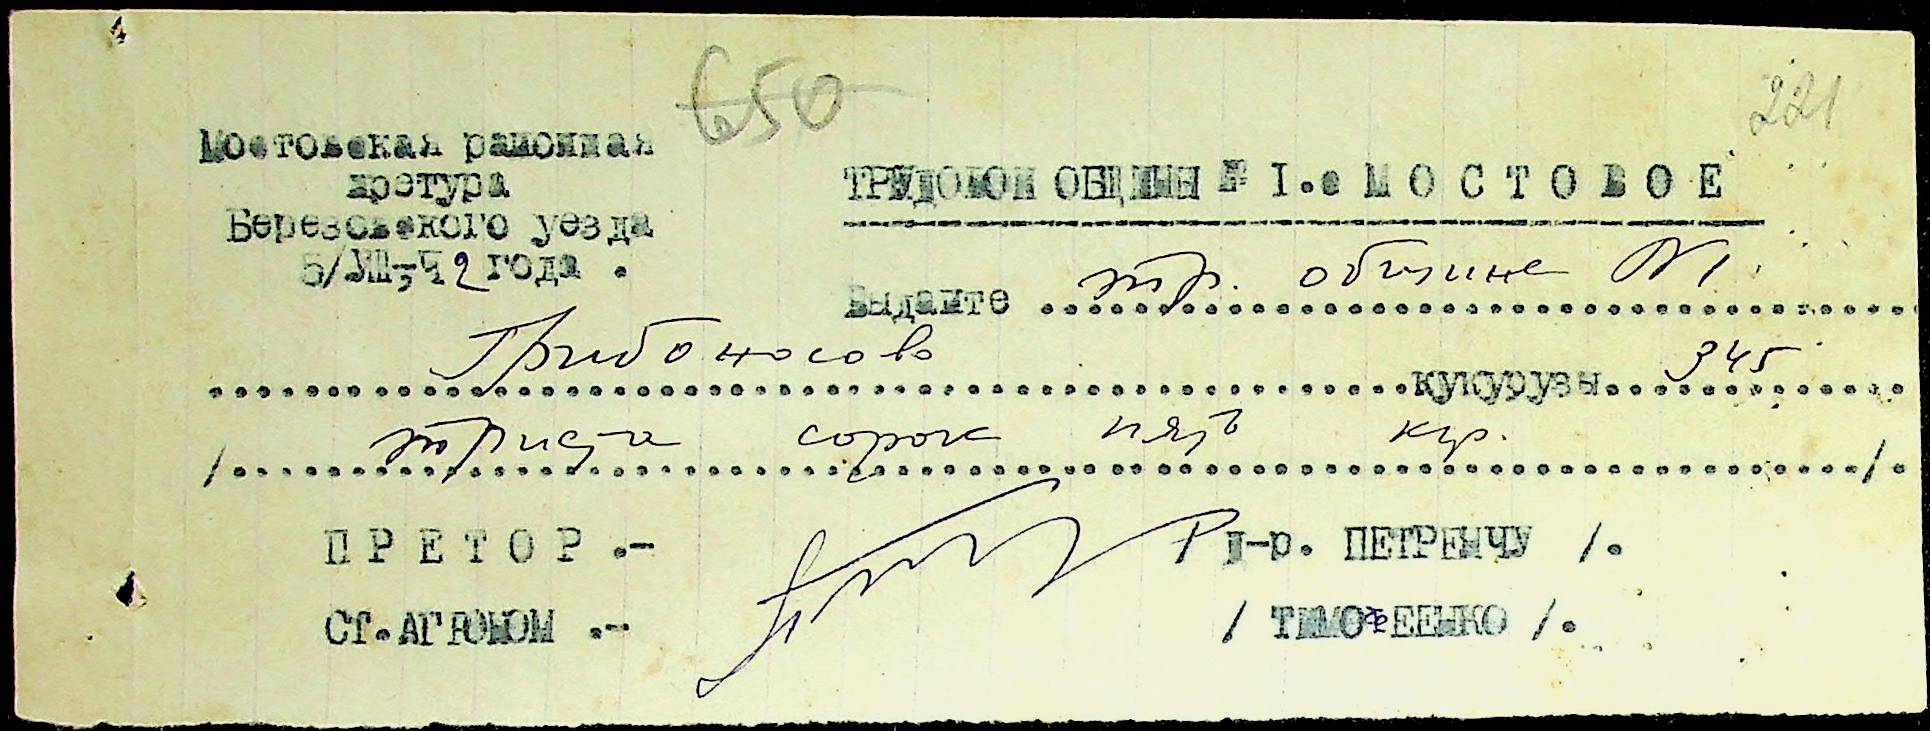 650
221
Мостовская районная
претура
Березовского уезда
5/УШ-42 года .
ТРУДОВОЙ ОБЩИНЫ № I.с М О С Т О В О Е
Выдайте ..... тр. общине N 1.
Грибоносово ..... кукурузы ..... 345
/ ..... триста сорок пять кгр. ..... / .
П Р Е Т О Р .-
/ Д-р. ПЕТРЕНЧУ /.
Ст. АГРОНОМ .-
/ ТИМОФЕЕНКО /.